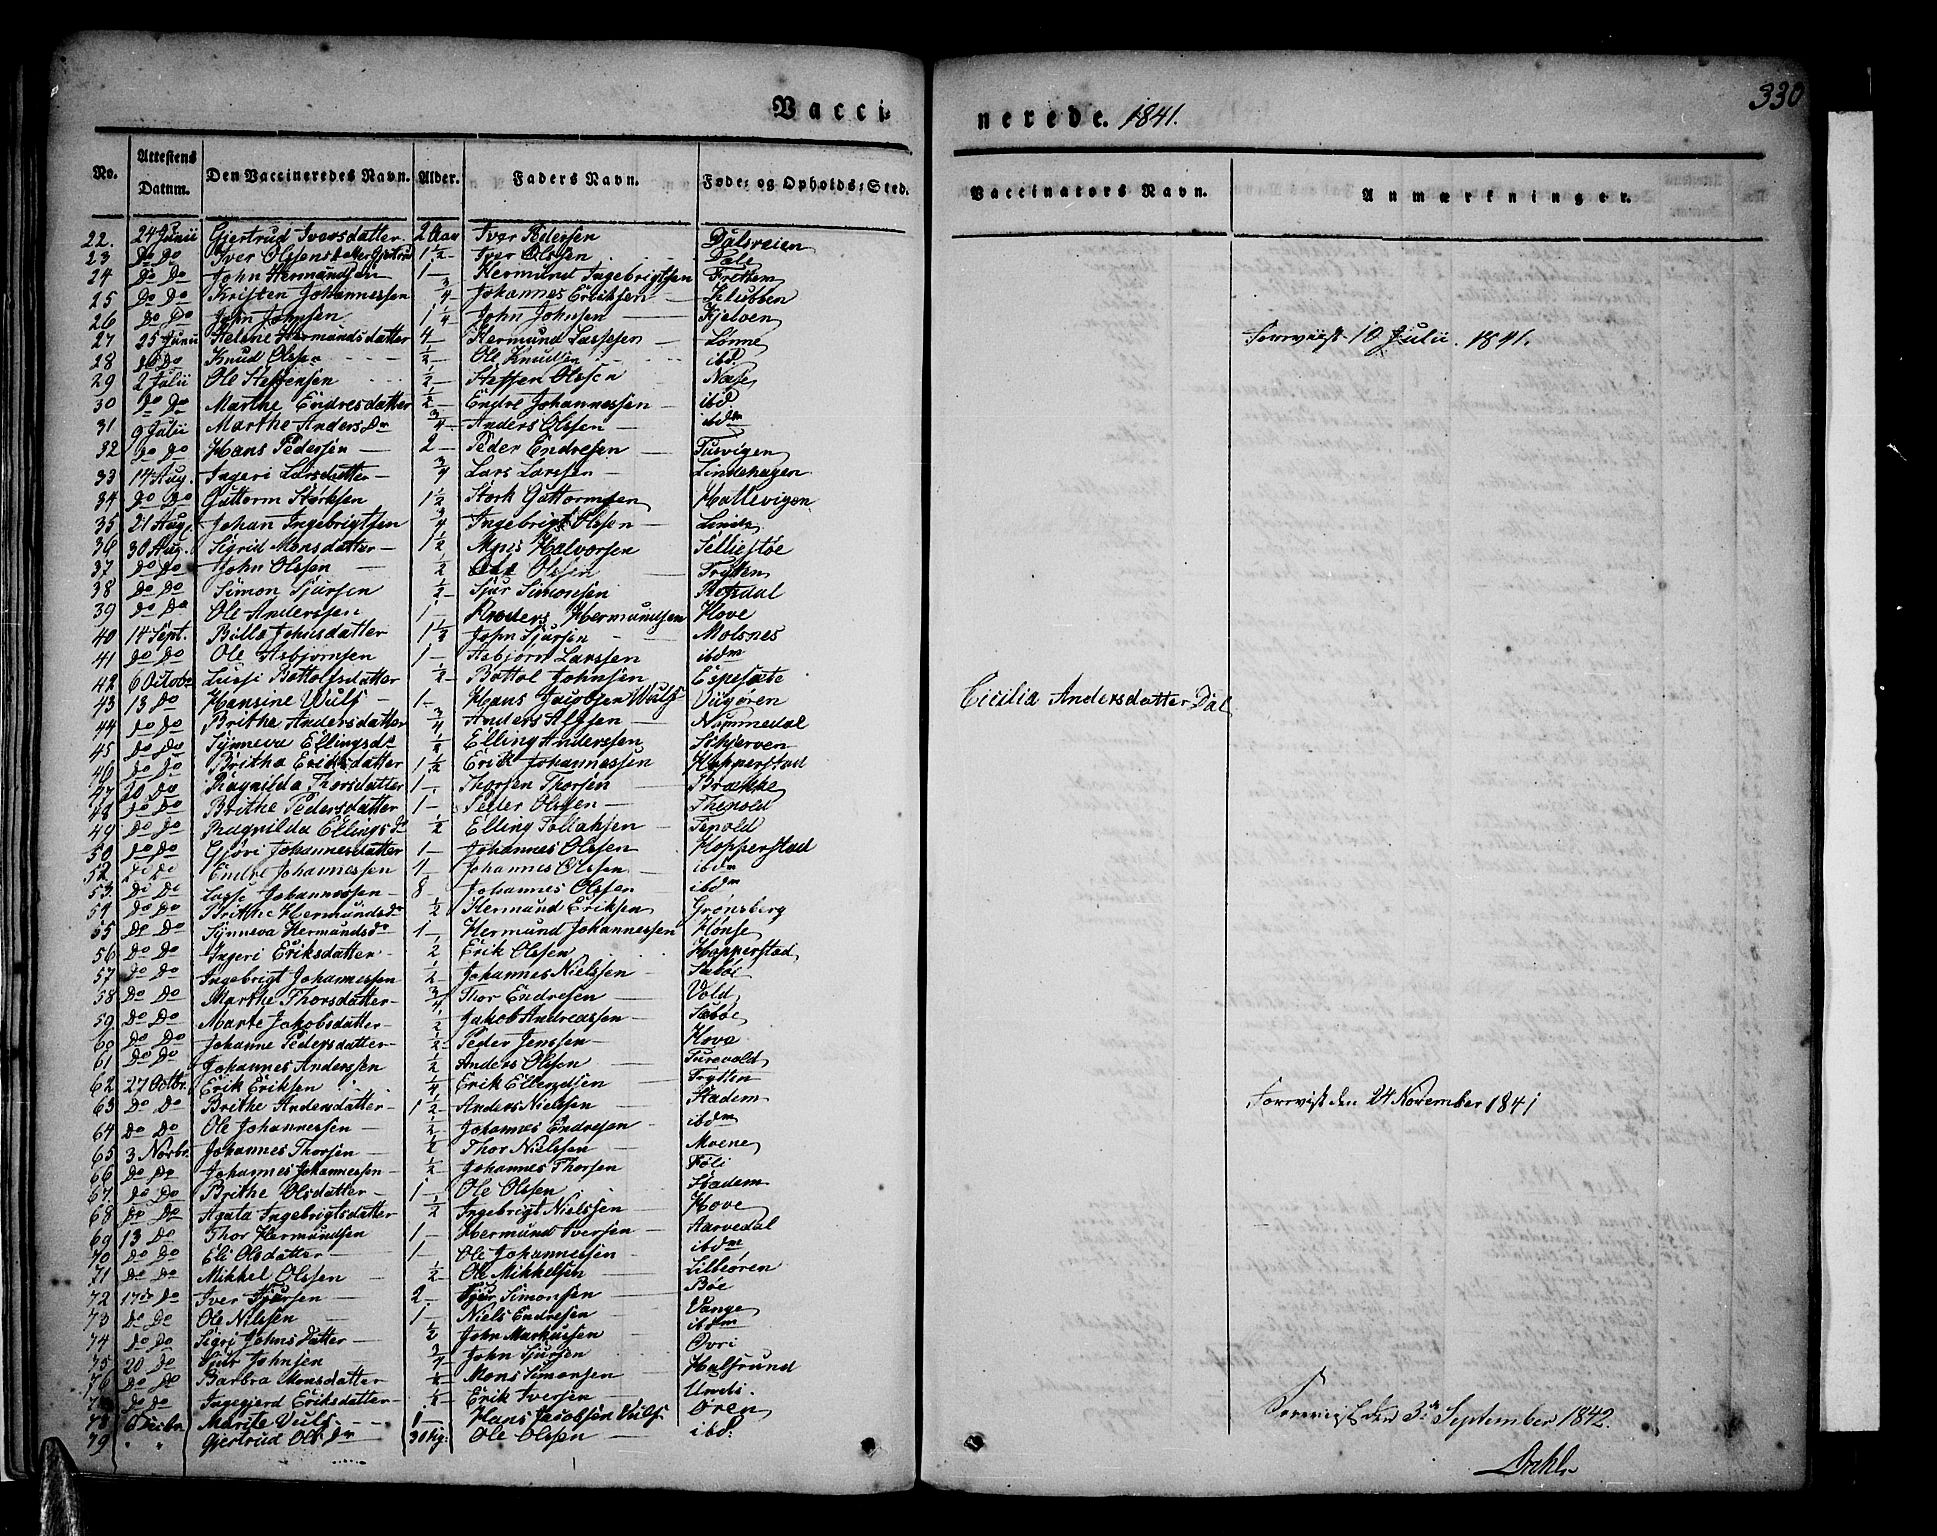 330
Vacci- nerede. 1841.
No. Attestens Datum. Den Vaccineredes Navn. Alder. Faders Navn. Føde- og Opholds-Sted. Vaccinators Navn. Anmærkninger.
22. 24 Junii Gjertrud Iversdatter 2 Aar Iver Pedersen Dalsveien
23 Do Do Iver Olssens datter Gjertrud 1 1/2 - Iver Olssen Dale
24 Do Do John Hermundsen 1 — Hermund Ingebrigtsen Frettem
25 Do Do Kristen Johannessen 3/4 - Johannes Eriksen — Klubben
26 Do Do John Johnsen 1 1/4 John Johnsen — Kjelven
27 25 Junii Helene Hermundsdatter 4 — Hermund Larssen — Lønne Forevist 10 Julii 1841.
28 Do Do Knud Olssen 1/2 - Ole Knudsen ibd
29 2 Julii Ole Steffensen 1/2 - Steffen Olssen Næse
30 Do Do Marthe Endresdatter 1/2 Endre Johannessen — ibd
31 9 Julii Marthe Anders Dr 3/4 - Anders Olssen — ibdm
32 Do Do Hans Pedersen 2 — Peder Endresen — Tuevigen
33 14 Aug. Ingeri Larsdatter — 3/4 Lars Larssen — Lindehagen
34 Do Do Guttorm Størksen 1 1/2 Størk Guttormsen Hallevigen
35 21 Aug Johan Ingebrigtsen 3/4 Ingebrigt Olssen — Linde
36 30 Aug. Sigrid Monsdatter — 1 1/2 Mons Halvorsen Selliestøe
37 Do Do John Olssen — 1/2 Ole Olssen Trytten
38 Do Do Simon Sjursen 1/2 - Sjur Simonsen Refsdal
39 Do Do Ole Anderssen 1 — Anders Hermundsen Hove
40 14 Sept. Britta Johnsdatter 1 1/2 John Sjursen Molsnes
41 Do Do Ole Asbjørnsen 1 — Asbjørn Larssen ibdm
42 6 Octobr Lussi Bottolfsdatter 1/2 - Bottol Johnsen Espesæte
43 13 Do Hansine Wulf 1 — Hans Jacobsen Wulf Vigøren Cicilia Andersdatter Dal
44 Do Do Brithe Andersdatter 3/4 Anders Alfsen — Nummedal
45 Do Do Synneva Ellingsdr 1/2 - Elling Anderssen Schjerven
46 Do Do Britha Eriksdatter 1 1/2 Erik Johannessen Hopperstad
47 20 Do Ragnilda Thorsdatter 1 — Thorsen Thorsen Brække
48 Do Do Brithe Pedersdatter 1 — Peder Olssen — Thepold
49 Do Do Ragnilda Ellings Dr 1/2 Elling Tollaksen — Tepold
50 Do Do Gjøri Johannesdatter 1 — Johannes Olssen Hopperstad
52 Do Do Endre Johannessen 4 — Johannes Olssen ibdm
53 Do Do Lasse Johannessen — 8 Johannes Olssen — ibdm
54 Do Do Brithe Hermundsdr 1/2 Hermund Eriksen Grønsberg
55 Do Do Synneva Hermundsdr 1 — Hermund Johannessen Hønse
56 Do Do Ingeri Eriksdatter — 1/2 Erik Olssen Hopperstad
57 Do Do Ingebrigt Johannessen 1/2 - Johannes Nielssen — Sæbøe
58 Do Do Marthe Thorsdatter — 3/4 Thor Endresen — Vold
59 Do Do Marte Jakobsdatter — 1/2 Jakob Andreassen — Sæbøe
60 Do Do Johanne Pedersdatter — 1/2 Peder Jenssen — Hove
61 Do Do Johannes Anderssen 1/2 Anders Olssen — Turevold
62 27 Octbr. Erik Eriksen 1/4 Erik Ellendsen Trytten
63 Do Do Brithe Andersdatter — 1 1/2 - Anders Nielssen — Stadem Forevist den 24 November 1841
64 Do Do Ole Johannessen — 1/2 Johannes Endresen — ibdm
65 3 Novbr. Johannes Thorsen — 1/2 Thor Nielssen — Moene
66 Do Do Johannes Johannessen — 1/2 Johannes Thorsen Føli
67 Do Do Brithe Olsdatter — 1 — Ole Olssen — Stadem
68 Do Do Agata Ingebrigtsdatter 1/2 Ingebrigt Nielssen — Hove
69 13 Do Thor Hermundsen 1 — Hermund Iversen — Aarvedal
70 Do Do Eli Olsdatter — 1 — Ole Johannessen — ibdm
71 Do Do Mikkel Olssen — 1/2 - Ole Mikkelsen — Lilleøren
72 17de Do Iver Sjursen — 2 — Sjur Simonsen — Bøe
73 Do Do Ole Nilssen 1 — Niels Endresen Vange
74 Do Do Sigri Johns datter — 1/2 John Markussen ibdm
75 20 Do Sjur Johnsen 3/4 - John Sjursen — Øvri
76 Do Do Barbra Monsdatter 1/2 - Mons Simonsen — Halsrund
77 Do Do Ingegjerd Eriksdatter — 1/2 - Erik Iversen — Undi
78 6 Decbr Marite Vulf 1 — Hans Jacobsen Vulf Øren Forevist den 3de September 1842.
79 " " Gjertrud Ols Dr 30 Ug: Ole Olssen — ibd: Dahl